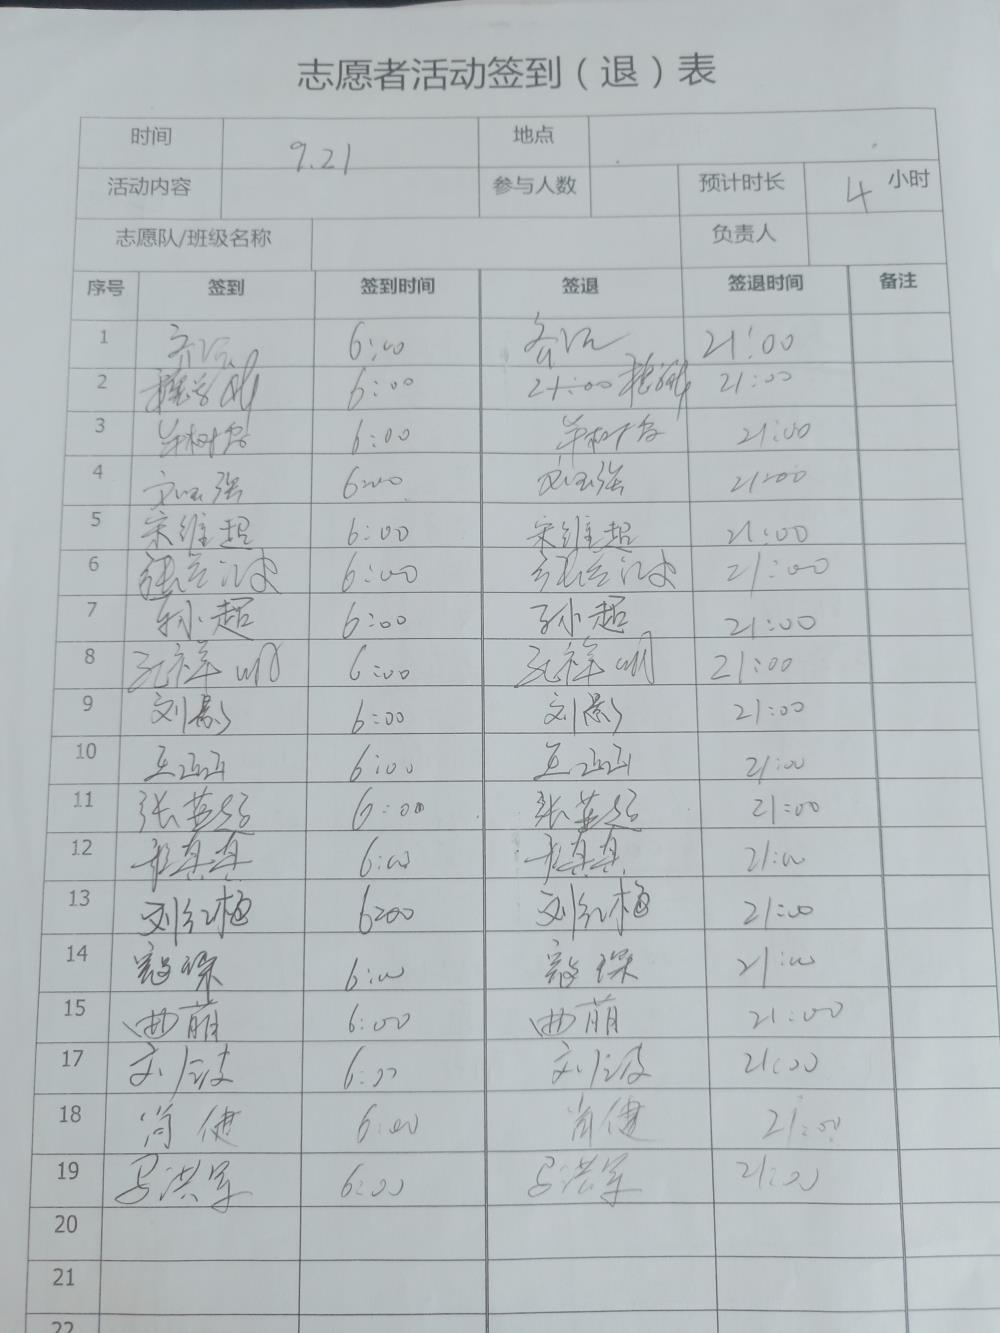 志愿者活动签到（退）表
时间 9.21 地点
活动内容 参与人数 预计时长 4 小时
志愿队/班级名称 负责人
序号 签到 签到时间 签退 签退时间 备注
1 6:00 21:00
2 6:00 21:00 21:00
3 6:00 21:00
4 6:00 21:00
5 宋维超 6:00 宋维超 21:00
6 6:00 21:00
7 孙超 6:00 孙超 21:00
8 6:00 21:00
9 刘影 6:00 刘影 21:00
10 王 6:00 王 21:00
11 张 6:00 张 21:00
12 6:00 21:00
13 刘红梅 6:00 刘红梅 21:00
14 6:00 21:00
15 曲萌 6:00 曲萌 21:00
17 6:00 21:00
18 肖健 6:00 肖健 21:00
19 马洪军 6:00 马洪军 21:00
20
21
22